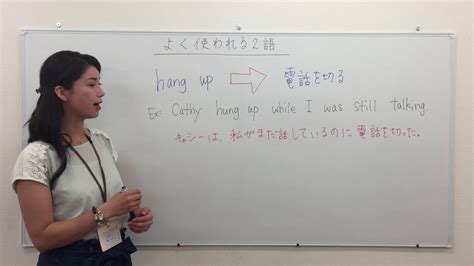 よく使われる2語
hang up ⇨ 電話を切る
Ex: Cathy hung up while I was still talking.
キャシーは、私がまだ話しているのに電話を切った。